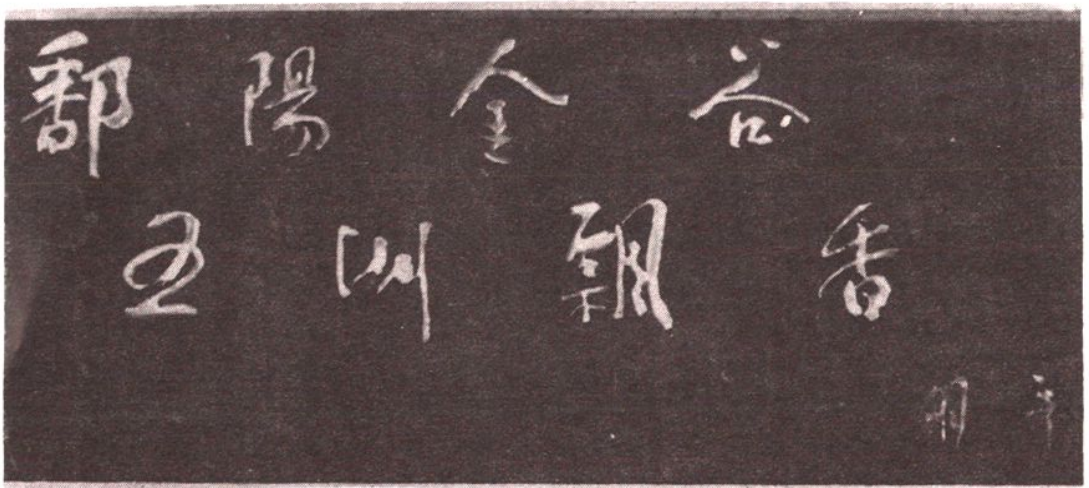 鄱陽金谷
五洲飄香